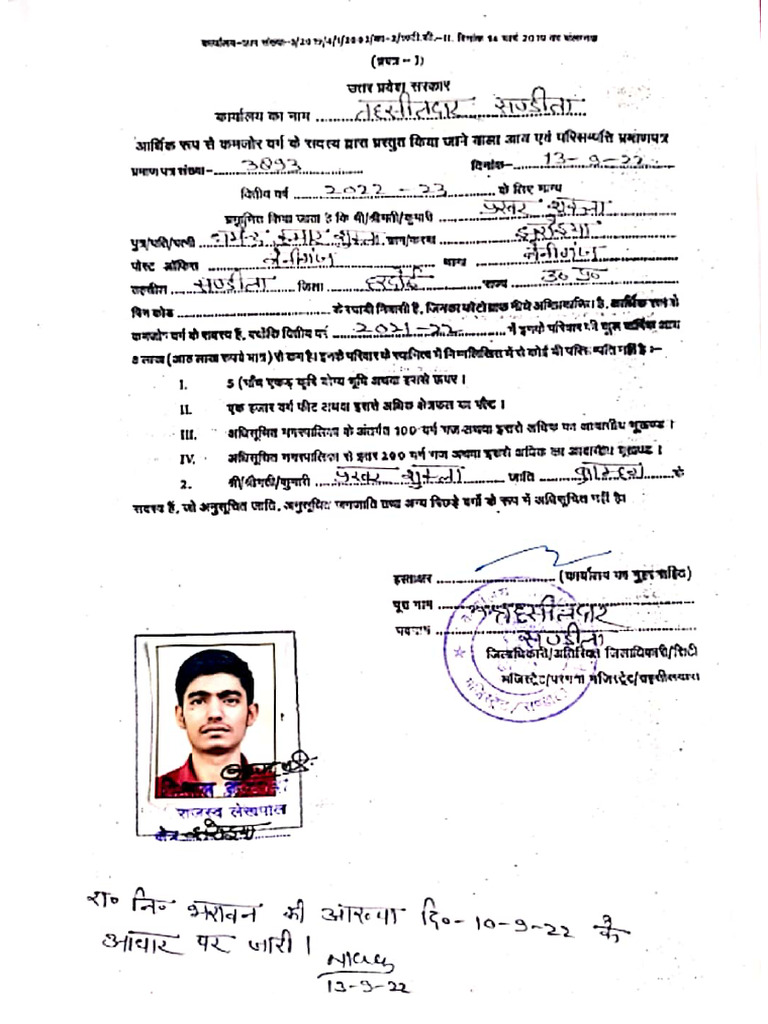 कार्यालय-ज्ञाप संख्या-3/2019/4/1/2002/का-2/19टी.सी.-II, दिनांक 14 मार्च 2019 का संलग्नक
(प्रपत्र - I)
उत्तर प्रदेश सरकार
कार्यालय का नाम तहसीलदार सण्डीला
आर्थिक रूप से कमजोर वर्ग के सदस्य द्वारा प्रस्तुत किया जाने वाला आय एवं परिसम्पत्ति प्रमाणपत्र
प्रमाण पत्र संख्या- 3893 दिनांक- 13-9-22
वित्तीय वर्ष 2022-23 के लिए मान्य
प्रमाणित किया जाता है कि श्री/श्रीमती/कुमारी प्रखर शुक्ला
पुत्र/पति/पत्नी कुमार शुक्ला ग्राम/कस्बा
पोस्ट ऑफिस बेनीगंज थाना बेनीगंज
तहसील सण्डीला जिला हरदोई राज्य उ० प्र०
पिन कोड के स्थायी निवासी हैं, जिनका फोटोग्राफ नीचे अभिप्रमाणित है, आर्थिक रूप से
कमजोर वर्ग के सदस्य हैं, क्योंकि वित्तीय वर्ष 2021-22 में इनके परिवार की कुल वार्षिक आय
8 लाख (आठ लाख रुपये मात्र) से कम है। इनके परिवार के स्वामित्व में निम्नलिखित में से कोई भी परिसम्पत्ति नहीं है :-
I. 5 (पाँच) एकड़ कृषि योग्य भूमि अथवा इससे ऊपर।
II. एक हजार वर्ग फीट अथवा इससे अधिक क्षेत्रफल का फ्लैट।
III. अधिसूचित नगरपालिका के अंतर्गत 100 वर्ग गज अथवा इससे अधिक का आवासीय भूखण्ड।
IV. अधिसूचित नगरपालिका से इतर 200 वर्ग गज अथवा इससे अधिक का आवासीय भूखण्ड।
2. श्री/श्रीमती/कुमारी प्रखर शुक्ला जाति ब्राह्मण के
सदस्य हैं, जो अनुसूचित जाति, अनुसूचित जनजाति तथा अन्य पिछड़े वर्गों के रूप में अधिसूचित नहीं है।
हस्ताक्षर (कार्यालय का मुहर सहित)
पूरा नाम तहसीलदार
पदनाम सण्डीला
जिलाधिकारी/अतिरिक्त जिलाधिकारी/सिटी
मजिस्ट्रेट/परगना मजिस्ट्रेट/तहसीलदार
राजस्व लेखपाल
क्षेत्र
रा० नि० भरावन की आख्या दि०-10-9-22 के
आधार पर जारी।
13-9-22